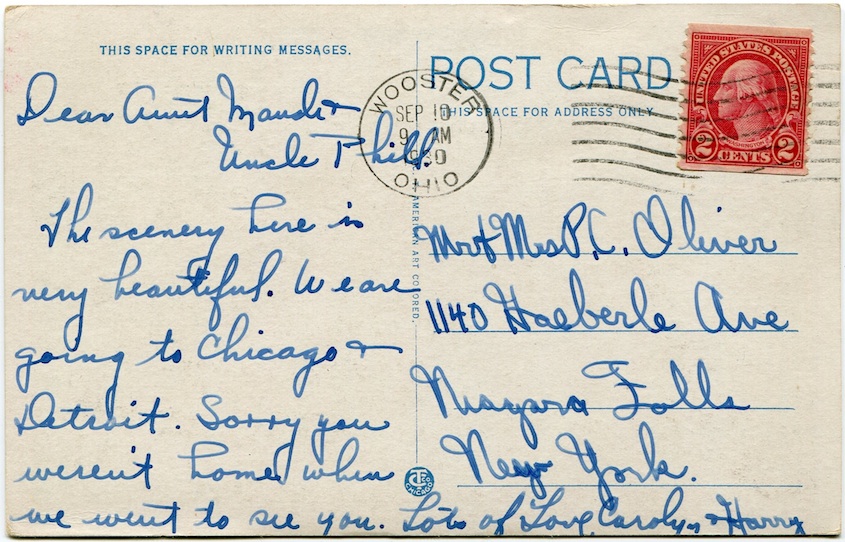 THIS SPACE FOR WRITING MESSAGES.
Dear Aunt Maude &
Uncle Phil.
The scenery here is
very beautiful. We are
going to Chicago &
Detroit. Sorry you
weren't home when
we went to see you. Lots of Love, Carolyn & Harry
POST CARD
THIS SPACE FOR ADDRESS ONLY
WOOSTER
SEP 10
9 AM
1930
OHIO
UNITED STATES POSTAGE
WASHINGTON
2 CENTS 2
AMERICAN ART COLORED.
Mr & Mrs P. C. Oliver
1140 Haeberle Ave
Niagara Falls
New York.
CHICAGO